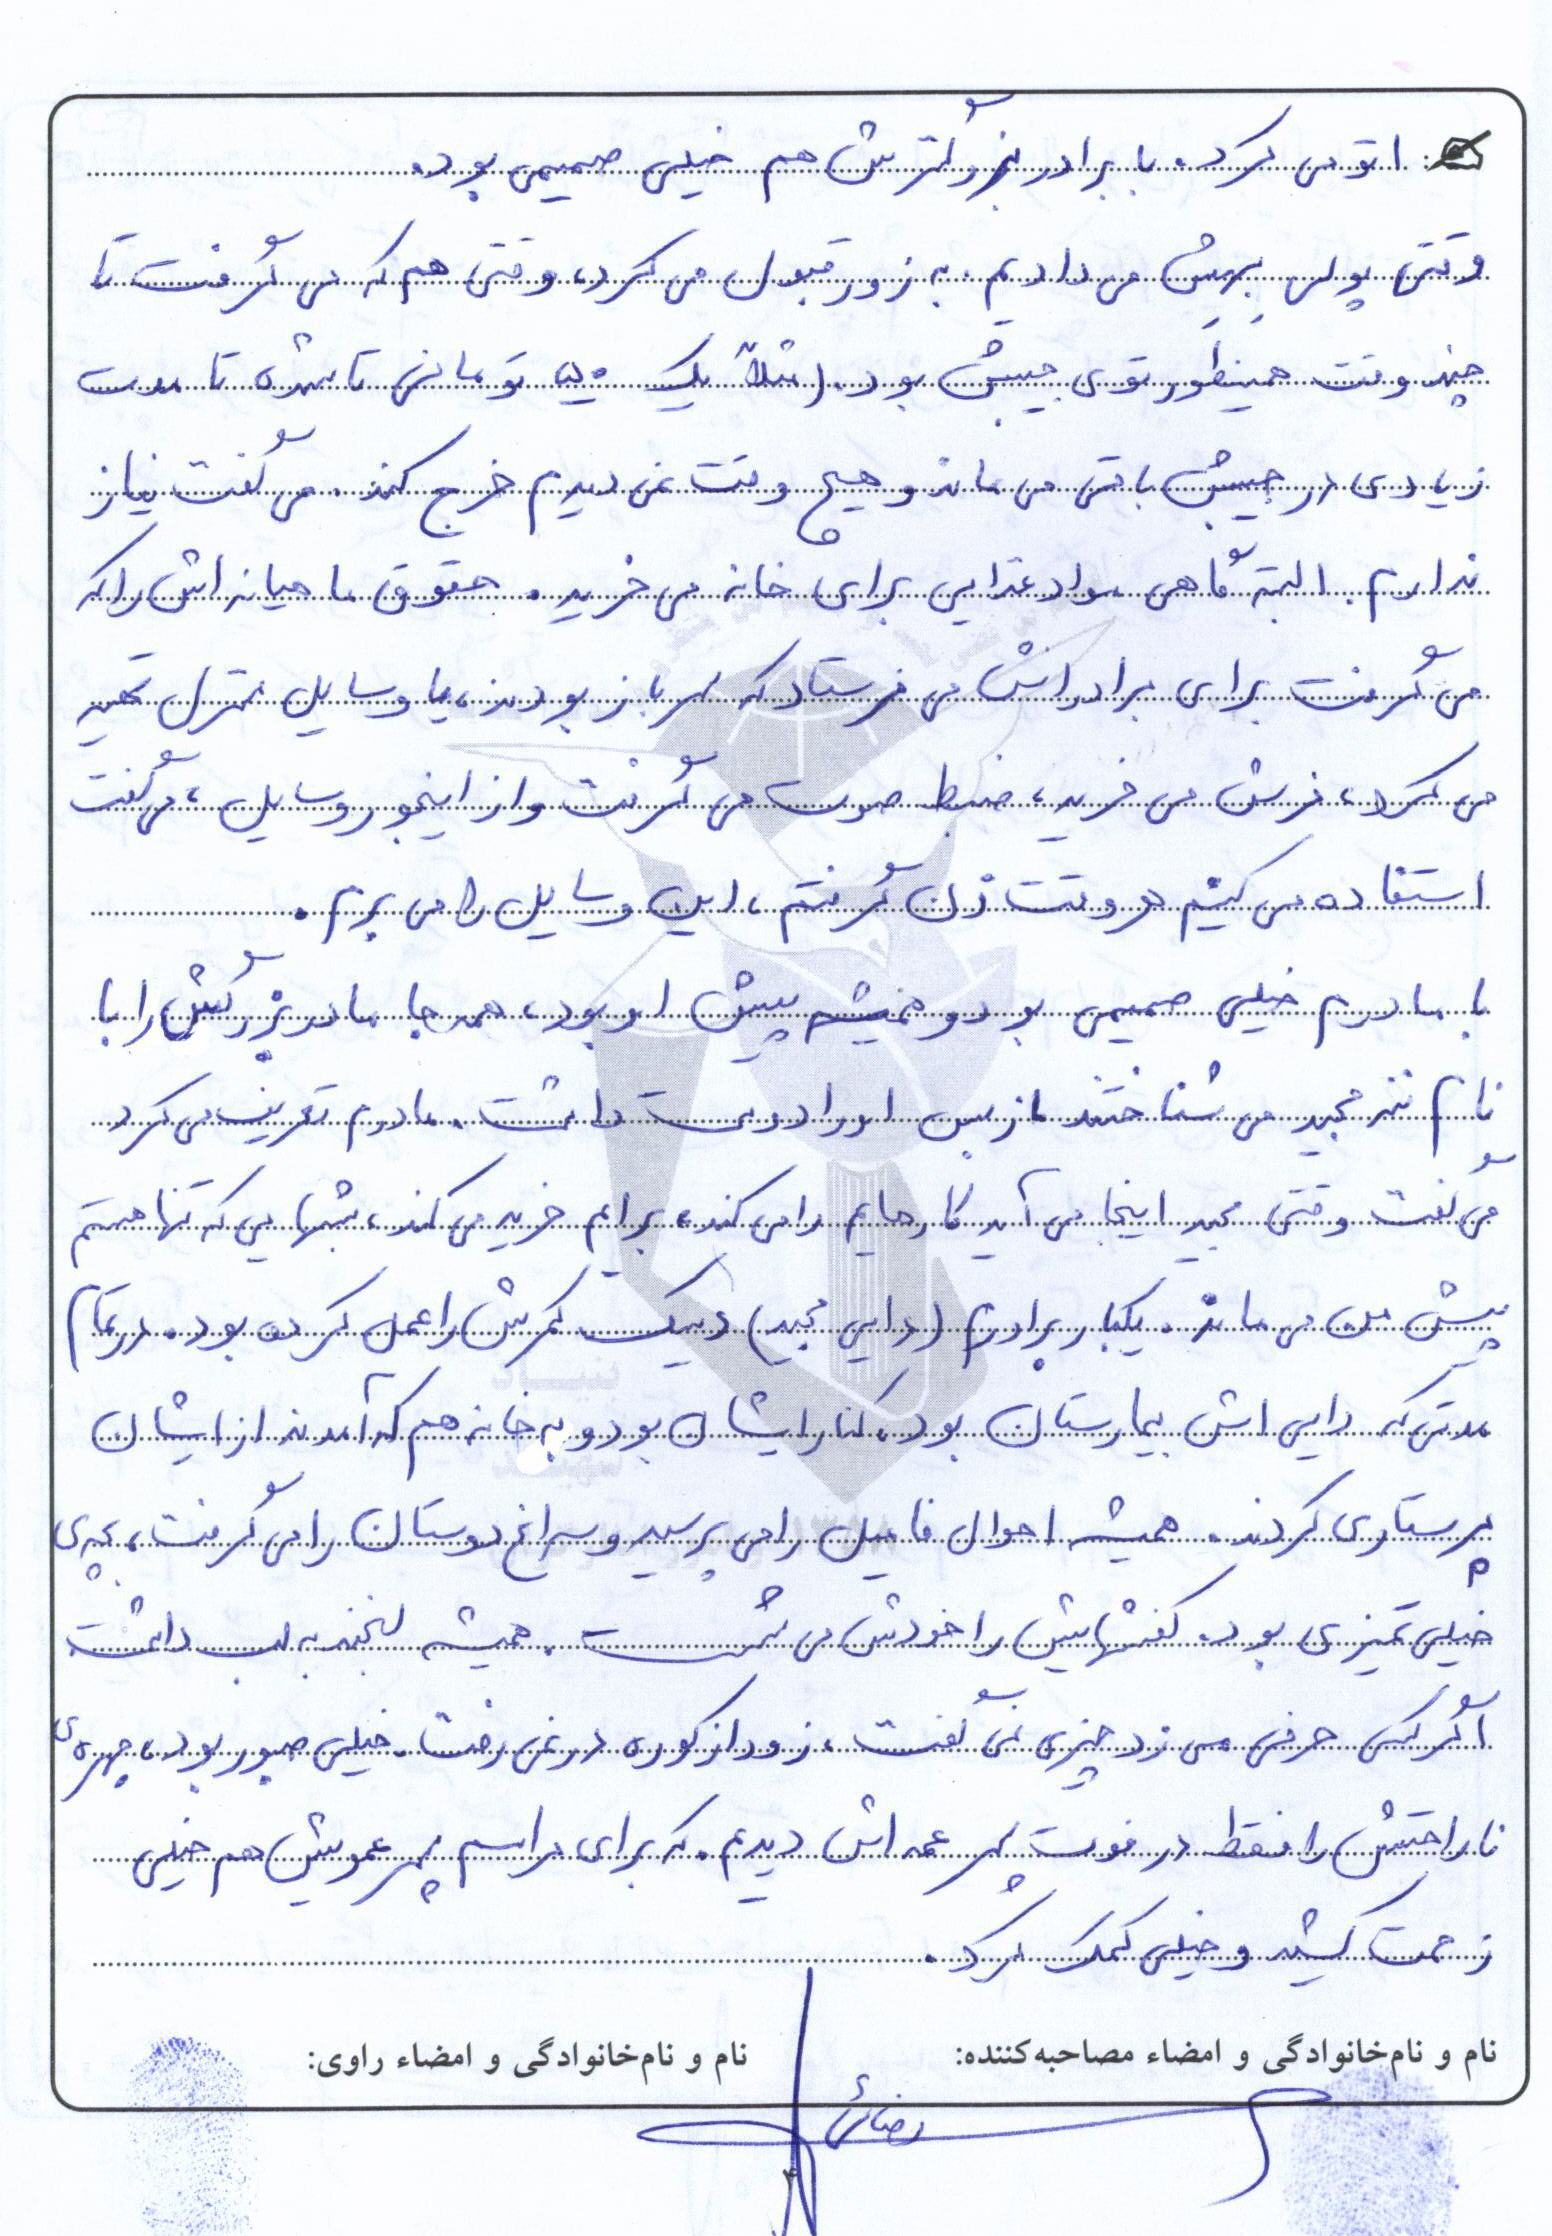 اتو می کرد. با برادر بزرگترش هم خیلی صمیمی بود.
وقتی پولی بهش می دادیم. به زور قبول می کرد، وقتی هم که می گرفت تا
چند وقت همینطور توی جیبش بود. (مثلاً یک ۵۰ تومانی تا شده تا مدت
زیادی در جیبش باقی می ماند و هیچ وقت نمی دیدم خرج کند. می گفت نیاز
ندارم. البته گاهی مواد غذایی برای خانه می خرید. حقوق ماهیانه اش را که
می گرفت برای برادرانش می فرستاد که سرباز بودند، یا وسایل منزل تهیه
می کرد، فرش می خرید، ضبط صوت می گرفت و از اینجور وسایل، می گفت
استفاده می کنیم هر وقت زن گرفتم، این وسایل را می برم.
با مادرم خیلی صمیمی بود و همیشه پیش او بود، همه جا مادربزرگش را با
نام ننه مجید می شناختند از بس او را دوست داشت. مادرم تعریف می کرد
می گفت وقتی مجید اینجا می آید کارهایم را می کند، برایم خرید می کند، شبهایی که تنها هستم
پیش من می ماند. یکبار برادرم (دایی مجید) دیسک کمرش را عمل کرده بود. در تمام
مدتی که دایی اش بیمارستان بود، کنار ایشان بود و به خانه هم که آمدند از ایشان
پرستاری کردند. همیشه احوال فامیل را می پرسید و سراغ دوستان را می گرفت، بچه ی
خیلی تمیزی بود. کفشهایش را خودش می شست. همیشه لبخند به لب داشت
اگر کسی حرفی می زد چیزی نمی گفت، زود از کوره در نمی رفت. خیلی صبور بود، چهره ی
ناراحتش را فقط در فوت پسر عمه اش دیدم. که برای مراسم پسر عمویش هم خیلی
زحمت کشید و خیلی کمک کرد.
نام و نام‌خانوادگی و امضاء مصاحبه‌کننده:
نام و نام‌خانوادگی و امضاء راوی:
رضائی
۴